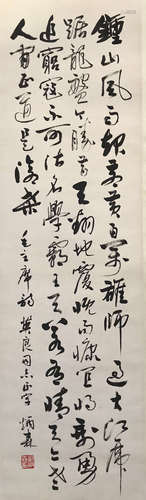 鍾山風雨起蒼黃百萬雄師過大江虎
踞龍盤今勝昔天翻地覆慨而慷宜將剩勇
追窮寇不可沽名學霸王天若有情天亦老
人間正道是滄桑 毛主席詩 良同志正字 炳森